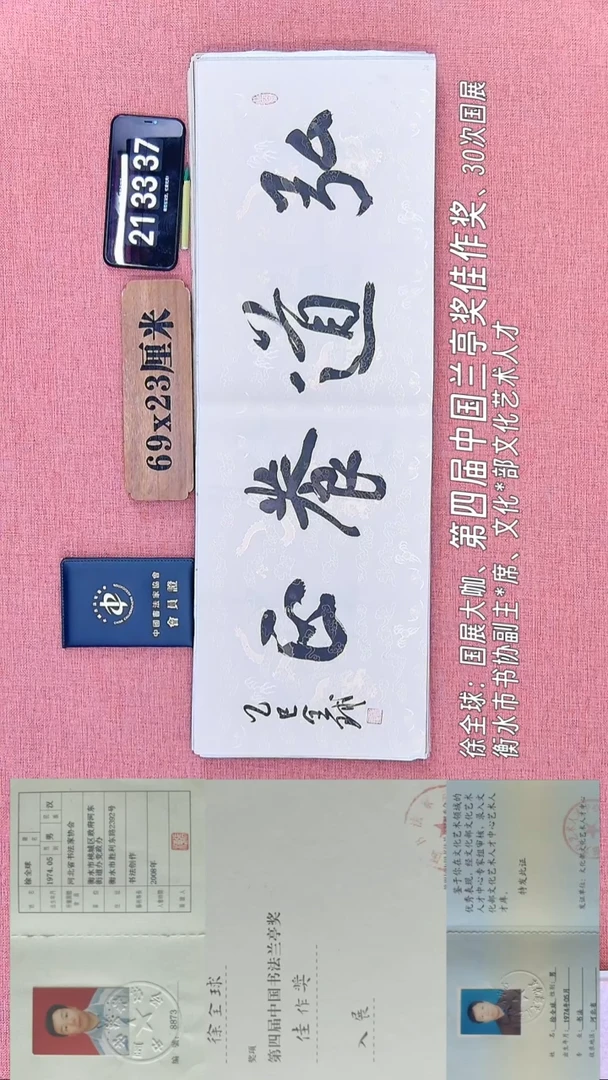 弘道养正
乙巳全球
21 33 37
69x23厘米
中國書法家協會
會員證
徐全球：国展大咖、第四届中国兰亭奖佳作奖、30次国展
衡水市书协副主*席、文化*部文化艺术人才
徐全球
1974.05 男 汉
河北省书法家协会
衡水市桃城区政府河东
街道办党政办
书法创作
2008年
编号：8873
徐全球
奖项
第四届中国书法兰亭奖
佳作奖
入展
鉴于你在文化艺术领域的
优秀表现，经文化部文化艺术
人才中心专家组审核，录入文
化部文化艺术人才中心艺术人
才库。
特发此证
发证单位：文化部文化艺术人才中心
徐全球
1974年05月
书法